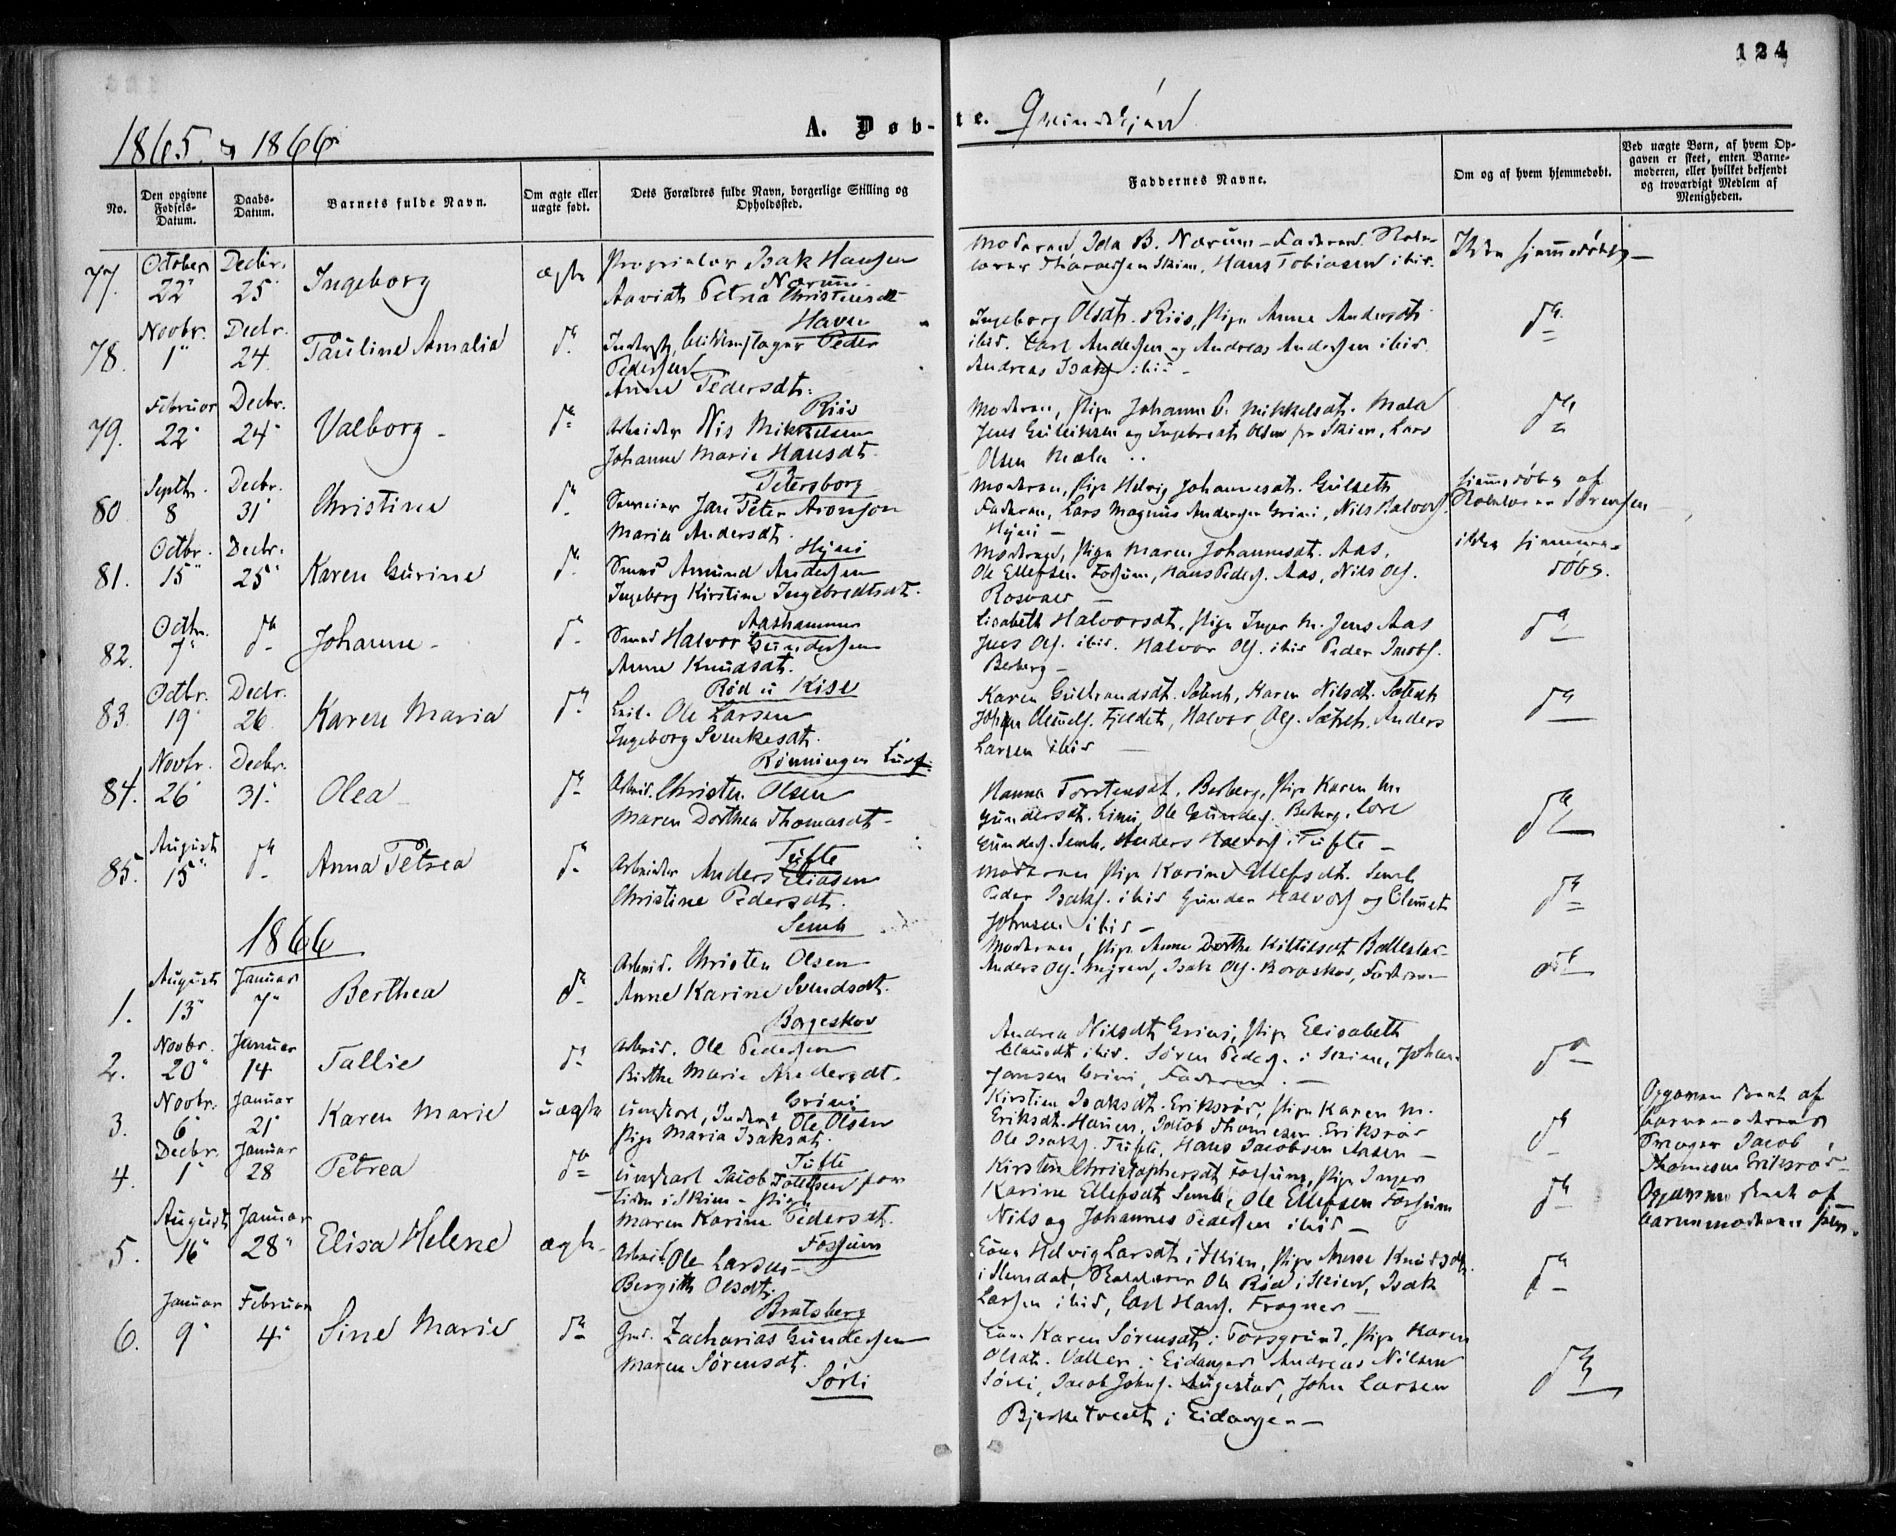 124
1865. & 1866.
A. Døbte. Qvindekjøn
No.
Den opgivne Fødsels-Datum.
Daabs-Datum.
Barnets fulde Navn.
Om ægte eller uægte født.
Dets Forældres fulde Navn, borgerlige Stilling og Opholdssted.
Faddernes Navne.
Om og af hvem hjemmedøbt.
Ved uægte Børn, af hvem Opgaven er skeet, enten Barnemoderen, eller hvilket bekjendt og troværdigt Medlem af Menigheden.
77. October 22 Decbr. 25 Ingeborg ægte
Proprietær Isak Hansen
Nærum
Petrea Christensdt
Haven
Moderen, Ida B. Nærum - Faderen
Hans Tobiasen ibid.
Ikke hjemmedøbt
78. Novbr. 1 Decbr. 24 Pauline Amalia do
Peder
Pedersen
Anne Pedersdt.
Riis
Ingeborg Olsdt. Riis, Pige Anne Andersdt
ibid. Carl Andersen og Andreas Andersen ibid.
Andreas Isaks. ibid
do
79. Februar 22 Decbr. 24 Valborg do
Arbeider Nis Mikkelsen
Johanne Marie Hansdt.
Petersborg
Moderen, Pige Johanne P. Mikkelsdt. Mæla
Jens Gulliksen og Ingebret Olsen fra Skien, Lars
Olsen Mæla
do
80 Septbr. 8 Decbr. 31 Christine do
Jan Peter Aronson
Maria Andersdt.
Hyni
Moderen, Pige Helvig Johannesdt. Gulseth
Faderen, Lars Magnus Andersen Grini, Nils Halvors.
Hyni
hjemmedøbt af
Sørensen
81. Octbr. 15 Decbr. 25 Karen Gurine do
Amund Andersen
Ingeborg Kirstine Ingebretsdt.
Aashammer
Moderen, Pige Maren Johannesdt. Aas,
Ole Ellefsen Fossum, Hans Peders. Aas, Nils Ols.
ikke hjemmedøbt.
82. Octbr. 7 do Johanne do
Halvor Gundersen
Anne Knudsdt.
Rød u Kise
Lisabeth Halvorsdt, Pige Inger M. Jens. Aas
Jens Ols. ibid. Halvor Ols. ibid Peder Jacobs.
Berberg
do
83. Octbr. 19 Decbr. 26 Karen Maria do
Ole Larsen
Ingeborg Svenkesdt.
Karen Gulbrandsdt. Sætret, Karen Nilsdt. Sætret
Fjeldet, Halvor Ols. Sætret. Anders
Larsen ibid
do
84. Novbr. 26 Decbr. 31 Olea do
Arbeid. Christen Olsen
Maren Dorthea Thomasdt
Tufte
Hanna Torstensdt. Berberg, Pige Karen M.
Gundersdt. Grini, Ole Gunders. Berberg, Lars
Gunders. Semb, Anders Halvors. Tufte
do
85. August 15 do Anna Petrea do
Arbeider Anders Eliasen
Christine Pedersdt.
Semb
Moderen Pige Karine Ellefsdt. Semb
Peder Isaks. ibid Gunder Halvors og Clemet
Johnsen ibid
do
1866
1. August 13 Januar 7 Berthea do
Arbeid. Christen Olsen
Anne Karine Svendsdt.
Borgeskov
Moderen, Pige Anne Dorthe Kittilsdt
Anders Ols. Isak Ols. Faderen
do
2. Novbr. 20 Januar 14 Tallie do
Arbeid. Ole Pedersen
Birthe Marie Andersdt.
Grini
Andrea Nilsdt Grini, Pige Elisabeth
ibid. Søren Peders. i Skien, Johan
Jansen Grini, Faderen.
do
3. Novbr. 6 Januar 21 Karen Marie uægte
Ungkarl, Ole Olsen
Pige Maria Isaksdt.
Tufte
Kirstine Isaksdt. Eriksrød, Pige Karen M.
Eriksdt. Haven, Jacob Thomesen Eriksrød
Ole Isaks. Tufte, Hans Jacobsen
do
Opgaven skeet af
barnemoderens
Jacob
Thomesen Eriksrød
4. Decbr. 1 Januar 28 Petrea do
Ungkarl Jacob Tollefsen for
tiden i Skien - Pige
Maren Karine Pedersdt.
Fossum
Kirsten Christophersdt Fossum, Pige Inger
Karine Ellefsdt Semb, Ole Ellefsen Fossum
Nils og Johannes Pedersen ibid
do
Opgaven skeet af
barnemoderen selv.
5. August 16 Januar 28 Elisa Helene ægte
Arbeid. Ole Larsen
Bergith Olsdt.
Bratsberg
Kone Helvig Larsdt i Skien, Pige Anne Knudsdt.
Ole Rød i Skien, Isak
Larsen ibid, Carl Hans. Frogner
do
6. Januar 9 Februar 4 Sine Marie do
Zacharias Gundersen
Maren Sørensdt.
Sørli
Kone Karen Sørensdt i Porsgrund, Pige Karen
Olsdt. Valler i Eidanger Andreas Nilsen
Sørli, Jacob Johns. Augestad, John Larsen
Bjerketvedt i Eidanger
do